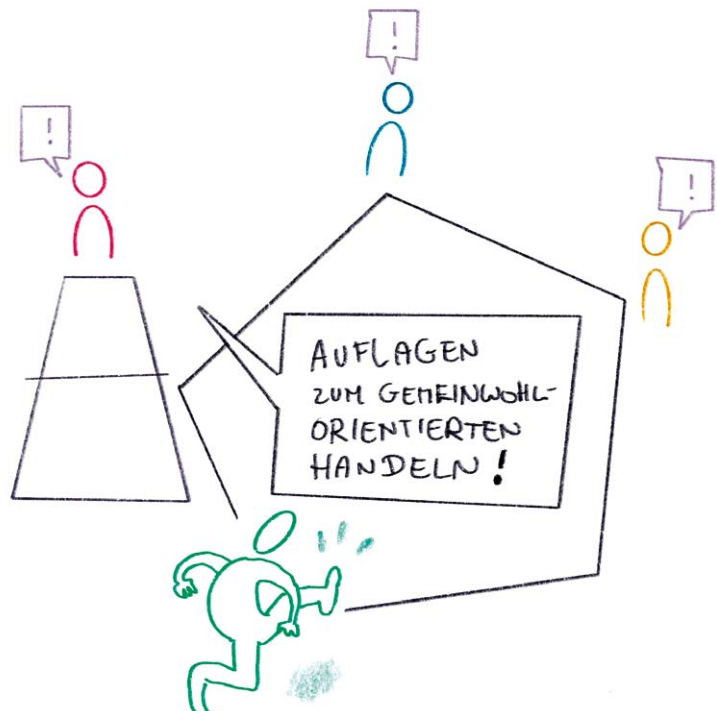 !
!
!
AUFLAGEN
ZUM GEMEINWOHL-
ORIENTIERTEN
HANDELN!